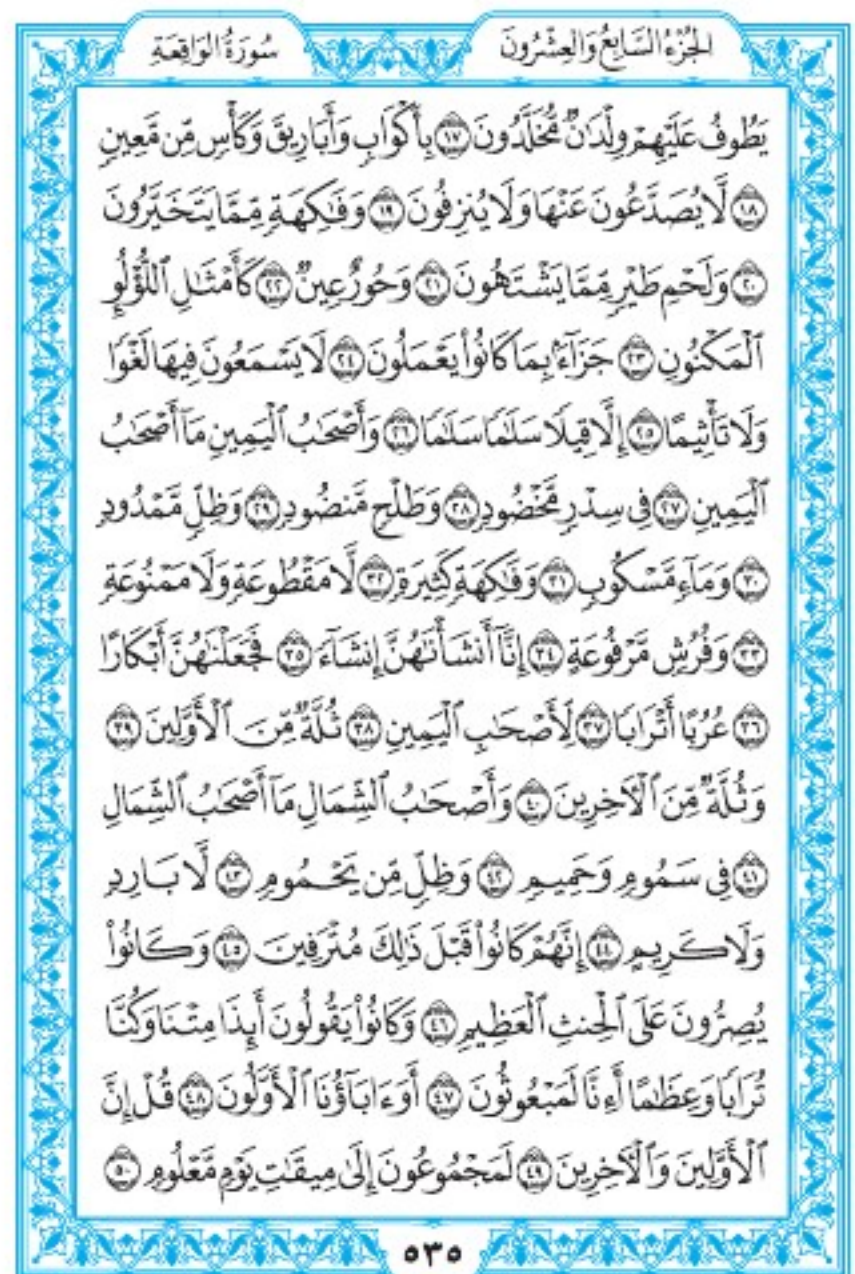 الجُزْءُ السَّابِعُ وَالعِشْرُونَ سُورَةُ الوَاقِعَةِ
يَطُوفُ عَلَيْهِمْ وِلْدَٰنٌ مُّخَلَّدُونَ ١٧ بِأَكْوَابٍ وَأَبَارِيقَ وَكَأْسٍ مِّن مَّعِينٍ
١٨ لَّا يُصَدَّعُونَ عَنْهَا وَلَا يُنزِفُونَ ١٩ وَفَٰكِهَةٍ مِّمَّا يَتَخَيَّرُونَ
٢٠ وَلَحْمِ طَيْرٍ مِّمَّا يَشْتَهُونَ ٢١ وَحُورٌ عِينٌ ٢٢ كَأَمْثَٰلِ ٱللُّؤْلُوِٕ
ٱلْمَكْنُونِ ٢٣ جَزَآءًۢ بِمَا كَانُوا۟ يَعْمَلُونَ ٢٤ لَا يَسْمَعُونَ فِيهَا لَغْوًا
وَلَا تَأْثِيمًا ٢٥ إِلَّا قِيلًا سَلَٰمًا سَلَٰمًا ٢٦ وَأَصْحَٰبُ ٱلْيَمِينِ مَآ أَصْحَٰبُ
ٱلْيَمِينِ ٢٧ فِى سِدْرٍ مَّخْضُودٍ ٢٨ وَطَلْحٍ مَّنضُودٍ ٢٩ وَظِلٍّ مَّمْدُودٍ
٣٠ وَمَآءٍ مَّسْكُوبٍ ٣١ وَفَٰكِهَةٍ كَثِيرَةٍ ٣٢ لَّا مَقْطُوعَةٍ وَلَا مَمْنُوعَةٍ
٣٣ وَفُرُشٍ مَّرْفُوعَةٍ ٣٤ إِنَّآ أَنشَأْنَٰهُنَّ إِنشَآءً ٣٥ فَجَعَلْنَٰهُنَّ أَبْكَارًا
٣٦ عُرُبًا أَتْرَابًا ٣٧ لِّأَصْحَٰبِ ٱلْيَمِينِ ٣٨ ثُلَّةٌ مِّنَ ٱلْأَوَّلِينَ ٣٩
وَثُلَّةٌ مِّنَ ٱلْءَاخِرِينَ ٤٠ وَأَصْحَٰبُ ٱلشِّمَالِ مَآ أَصْحَٰبُ ٱلشِّمَالِ
٤١ فِى سَمُومٍ وَحَمِيمٍ ٤٢ وَظِلٍّ مِّن يَحْمُومٍ ٤٣ لَّا بَارِدٍ
وَلَا كَرِيمٍ ٤٤ إِنَّهُمْ كَانُوا۟ قَبْلَ ذَٰلِكَ مُتْرَفِينَ ٤٥ وَكَانُوا۟
يُصِرُّونَ عَلَى ٱلْحِنثِ ٱلْعَظِيمِ ٤٦ وَكَانُوا۟ يَقُولُونَ أَئِذَا مِتْنَا وَكُنَّا
تُرَابًا وَعِظَٰمًا أَءِنَّا لَمَبْعُوثُونَ ٤٧ أَوَءَابَآؤُنَا ٱلْأَوَّلُونَ ٤٨ قُلْ إِنَّ
ٱلْأَوَّلِينَ وَٱلْءَاخِرِينَ ٤٩ لَمَجْمُوعُونَ إِلَىٰ مِيقَٰتِ يَوْمٍ مَّعْلُومٍ ٥٠
٥٣٥